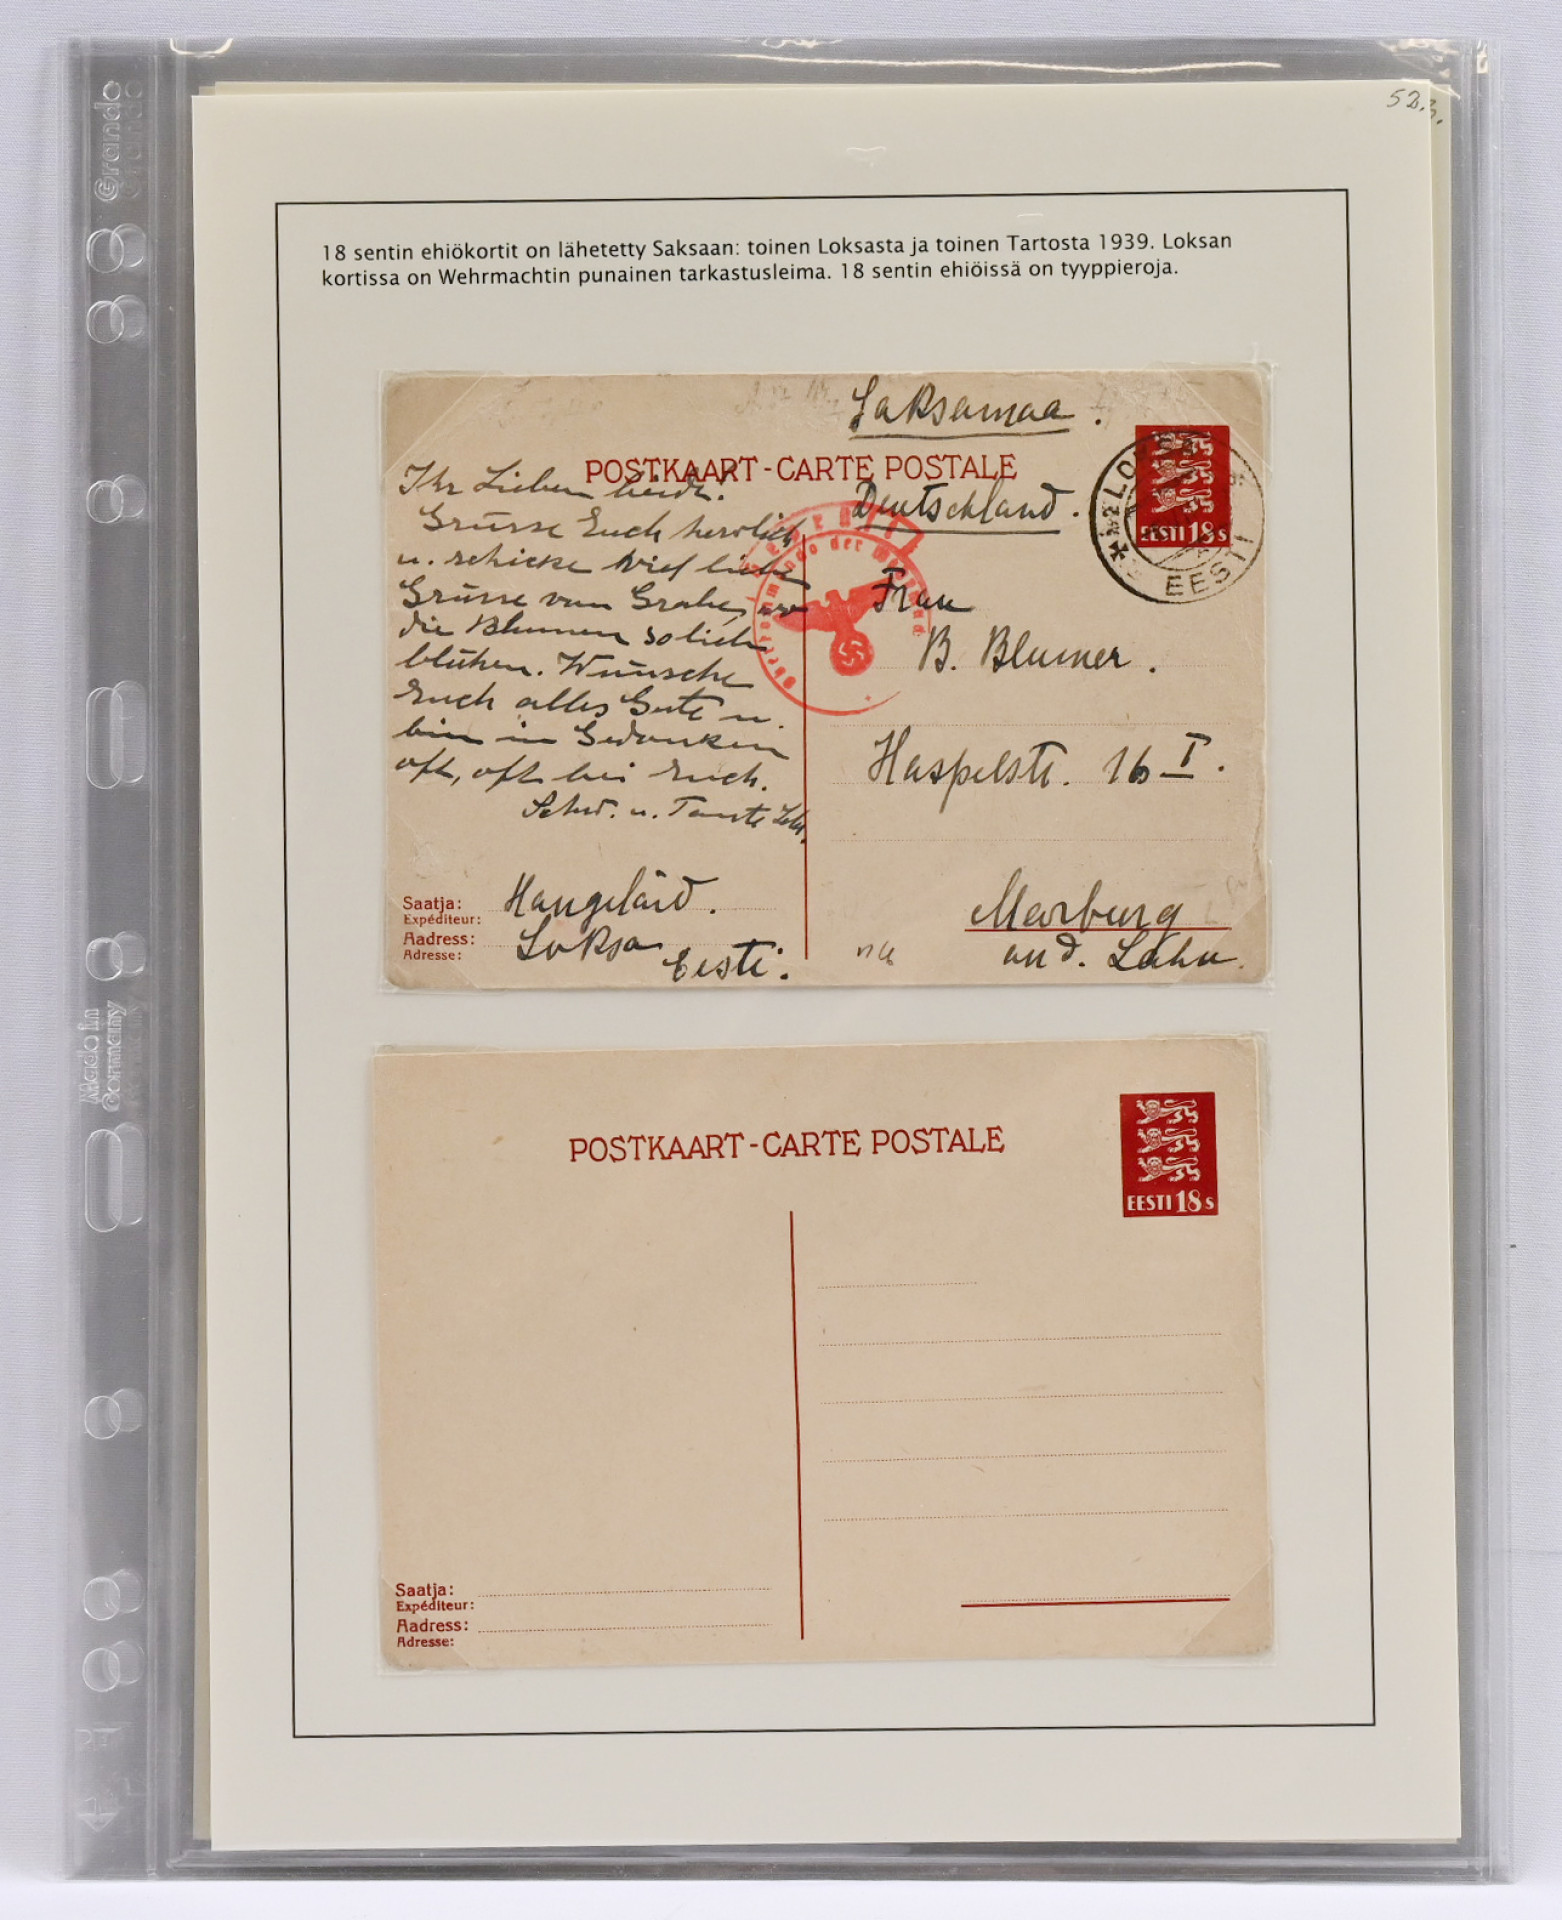 Grando
52.3.
18 sentin ehiökortit on lähetetty Saksaan: toinen Loksasta ja toinen Tartosta 1939. Loksan
kortissa on Wehrmachtin punainen tarkastusleima. 18 sentin ehiöissä on tyyppieroja.
Saksamaa.
POSTKAART - CARTE POSTALE
Deutschland.
EESTI 18 s
EESTI
Oberkommando der Wehrmacht
Ihr Lieben beide!
Grüsse Euch herzlich
u. schicke viel liebe
Grüsse vom Grabe, wo
die Blumen so lieb
blühen. Wünsche
Euch alles Gute u.
bin in Gedanken
oft, oft bei Euch.
u. Tante
Frau
B. Blumer.
Haspelstr. 16 I.
Marburg
an d. Lahn.
Saatja: Hangeläid.
Expéditeur:
Aadress: Loksa
Adresse: Eesti.
Made in
Germany
POSTKAART - CARTE POSTALE
EESTI 18 s
Saatja:
Expéditeur:
Aadress:
Adresse: